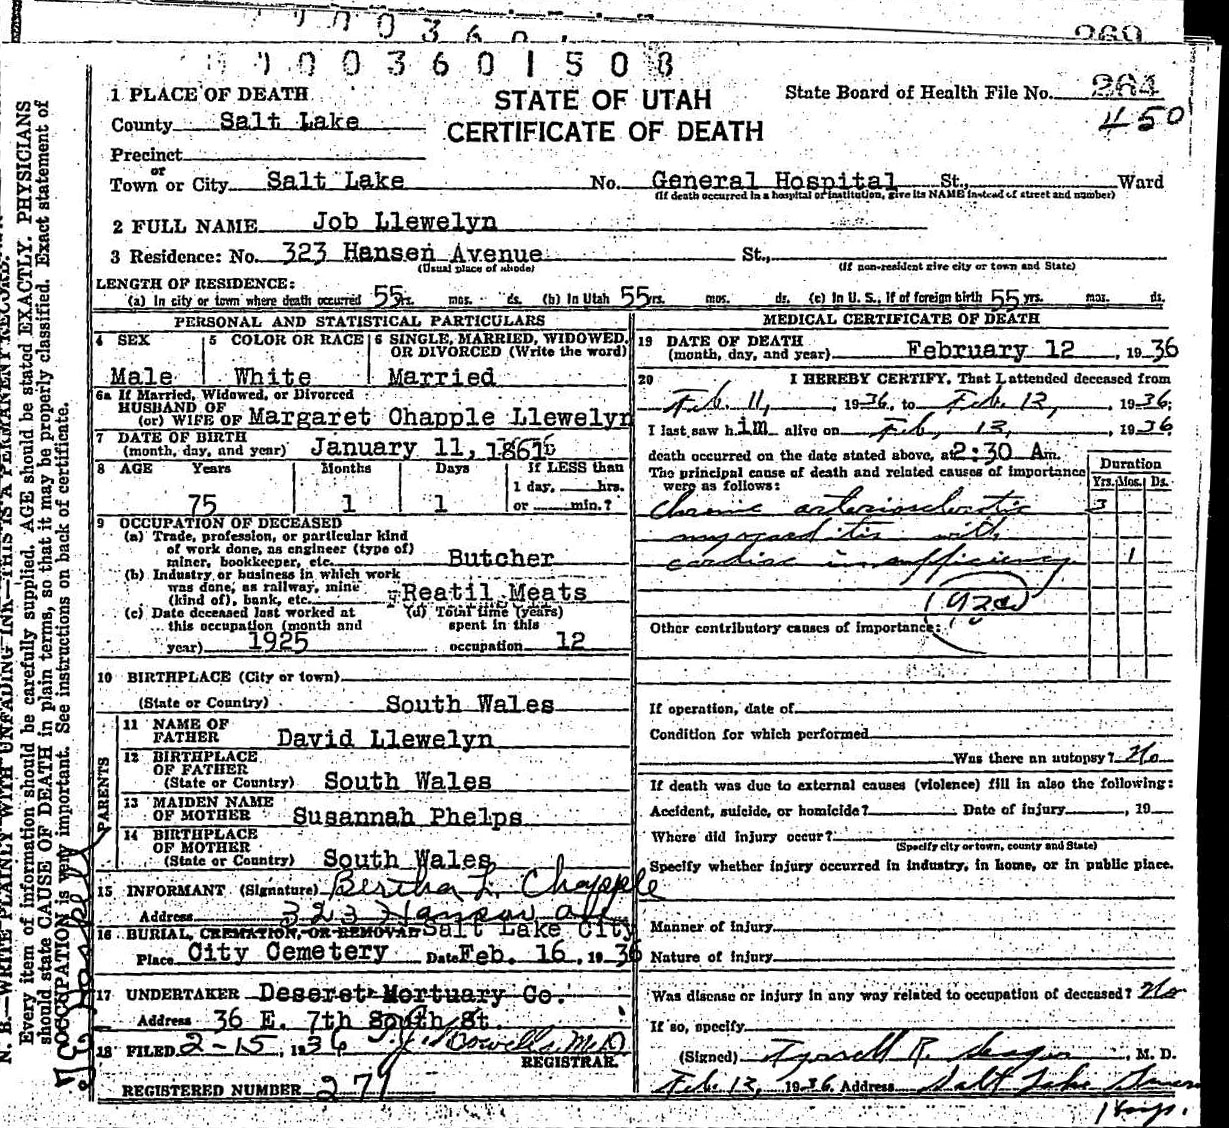 0 0 3 6 0
269
0 0 0 3 6 0 1 5 0 8
1 PLACE OF DEATH
STATE OF UTAH
CERTIFICATE OF DEATH
State Board of Health File No. 264
450
County Salt Lake
Precinct
or
Town or City Salt Lake No. General Hospital St., Ward
(If death occurred in a hospital or institution, give its NAME instead of street and number)
2 FULL NAME Job Llewelyn
3 Residence: No. 323 Hansen Avenue St.,
(Usual place of abode) (If non-resident give city or town and State)
LENGTH OF RESIDENCE:
(a) In city or town where death occurred 55 yrs. mos. ds. (b) In Utah 55 yrs. mos. ds. (c) In U. S., if of foreign birth 55 yrs. mos. ds.
PERSONAL AND STATISTICAL PARTICULARS
4 SEX 5 COLOR OR RACE 6 SINGLE, MARRIED, WIDOWED,
OR DIVORCED (Write the word)
Male White Married
6a If Married, Widowed, or Divorced
HUSBAND OF
(or) WIFE OF Margaret Chapple Llewelyn
7 DATE OF BIRTH
(month, day, and year) January 11,
8 AGE Years Months Days If LESS than
1 day, hrs.
75 1 1 or min.?
9 OCCUPATION OF DECEASED
(a) Trade, profession, or particular kind
of work done, as engineer (type of)
miner, bookkeeper, etc. Butcher
(b) Industry or business in which work
was done, as railway, mine
(kind of), bank, etc. Reatil Meats
(c) Date deceased last worked at (d) Total time (years)
this occupation (month and spent in this
year) 1925 occupation 12
10 BIRTHPLACE (City or town)
(State or Country) South Wales
PARENTS
11 NAME OF
FATHER David Llewelyn
12 BIRTHPLACE
OF FATHER
(State or Country) South Wales
13 MAIDEN NAME
OF MOTHER Susannah Phelps
14 BIRTHPLACE
OF MOTHER
(State or Country) South Wales
15 INFORMANT (Signature) Bertha L. Chapple
Address 323 Hansen
16 BURIAL, CREMATION, OR REMOVAL Salt Lake City
Place City Cemetery Date Feb. 16, 1936
17 UNDERTAKER Deseret Mortuary Co.
Address 36 E. 7th South St.
18 FILED 2-15, 1936
REGISTRAR
REGISTERED NUMBER 279
MEDICAL CERTIFICATE OF DEATH
19 DATE OF DEATH
(month, day, and year) February 12, 1936
20 I HEREBY CERTIFY, That I attended deceased from
Feb. 11, 1936, to Feb. 12, 1936;
I last saw him alive on Feb. 12, 1936
death occurred on the date stated above, at 2:30 Am.
The principal cause of death and related causes of importance
were as follows:
Duration
Yrs. Mos. Ds.
Chronic arteriosclerotic 3
myocarditis with
cardiac insufficiency 1
Other contributory causes of importance:
If operation, date of
Condition for which performed
Was there an autopsy? No
If death was due to external causes (violence) fill in also the following:
Accident, suicide, or homicide? Date of injury, 19
Where did injury occur?
(Specify city or town, county and State)
Specify whether injury occurred in industry, in home, or in public place.
Manner of injury
Nature of injury
Was disease or injury in any way related to occupation of deceased? No
If so, specify
(Signed) R. M. D.
Feb. 12, 1936 Address Salt Lake
Hosp.
N. B.—WRITE PLAINLY WITH UNFADING INK—THIS IS A PERMANENT RECORD.
Every item of information should be carefully supplied. AGE should be stated EXACTLY. PHYSICIANS
should state CAUSE OF DEATH in plain terms, so that it may be properly classified. Exact statement of
OCCUPATION is very important. See instructions on back of certificate.